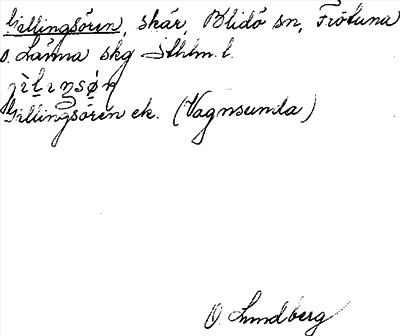 Gillingsören, skär, Blidö sn, Frötuna
o. Länna skg Sthlm. l.
Gillingsören ek. (Vagnsunda)
O. Lundberg